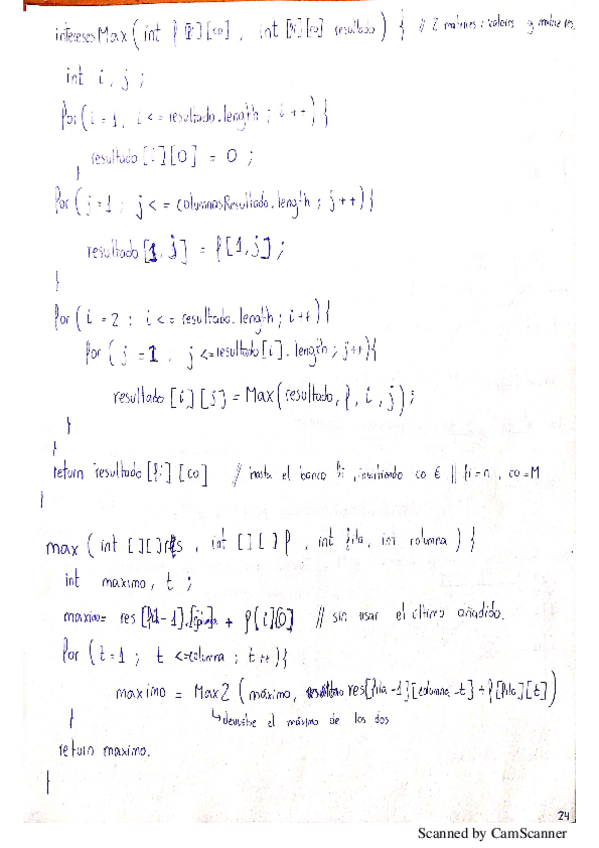 interesesMax ( int f [fi][co] , int [fi][co] resultado ) { // 2 matrices : valores y matriz res.
int i, j ;
for ( i = 1 , i <= resultado.length ; i++ ) {
resultado [i][0] = 0 ;
}
for ( j = 1 ; j <= columnasResultado.length ; j++ ) {
resultado [1, j] = f[1,j] ;
}
for ( i = 2 ; i <= resultado.length ; i++ ) {
for ( j = 1 , j <= resultado [i]. length ; j++ ) {
resultado [i][j] = Max ( resultado, f , i , j ) ;
}
}
return resultado [fi] [co] // hasta el banco fi , invirtiendo co € || fi = n , co = M
}
max ( int [][] res , int [][] f , int fila, int columna ) {
int maximo, t ;
maximo = res [fila-1]. + f[i][0] // sin usar el último añadido.
for ( t = 1 ; t <= columna ; t++ ) {
maximo = Max2 ( maximo, res[fila-1][columna-t] + f[fila][t] )
↳ devuelve el máximo de los dos
}
return maximo.
}
24
Scanned by CamScanner